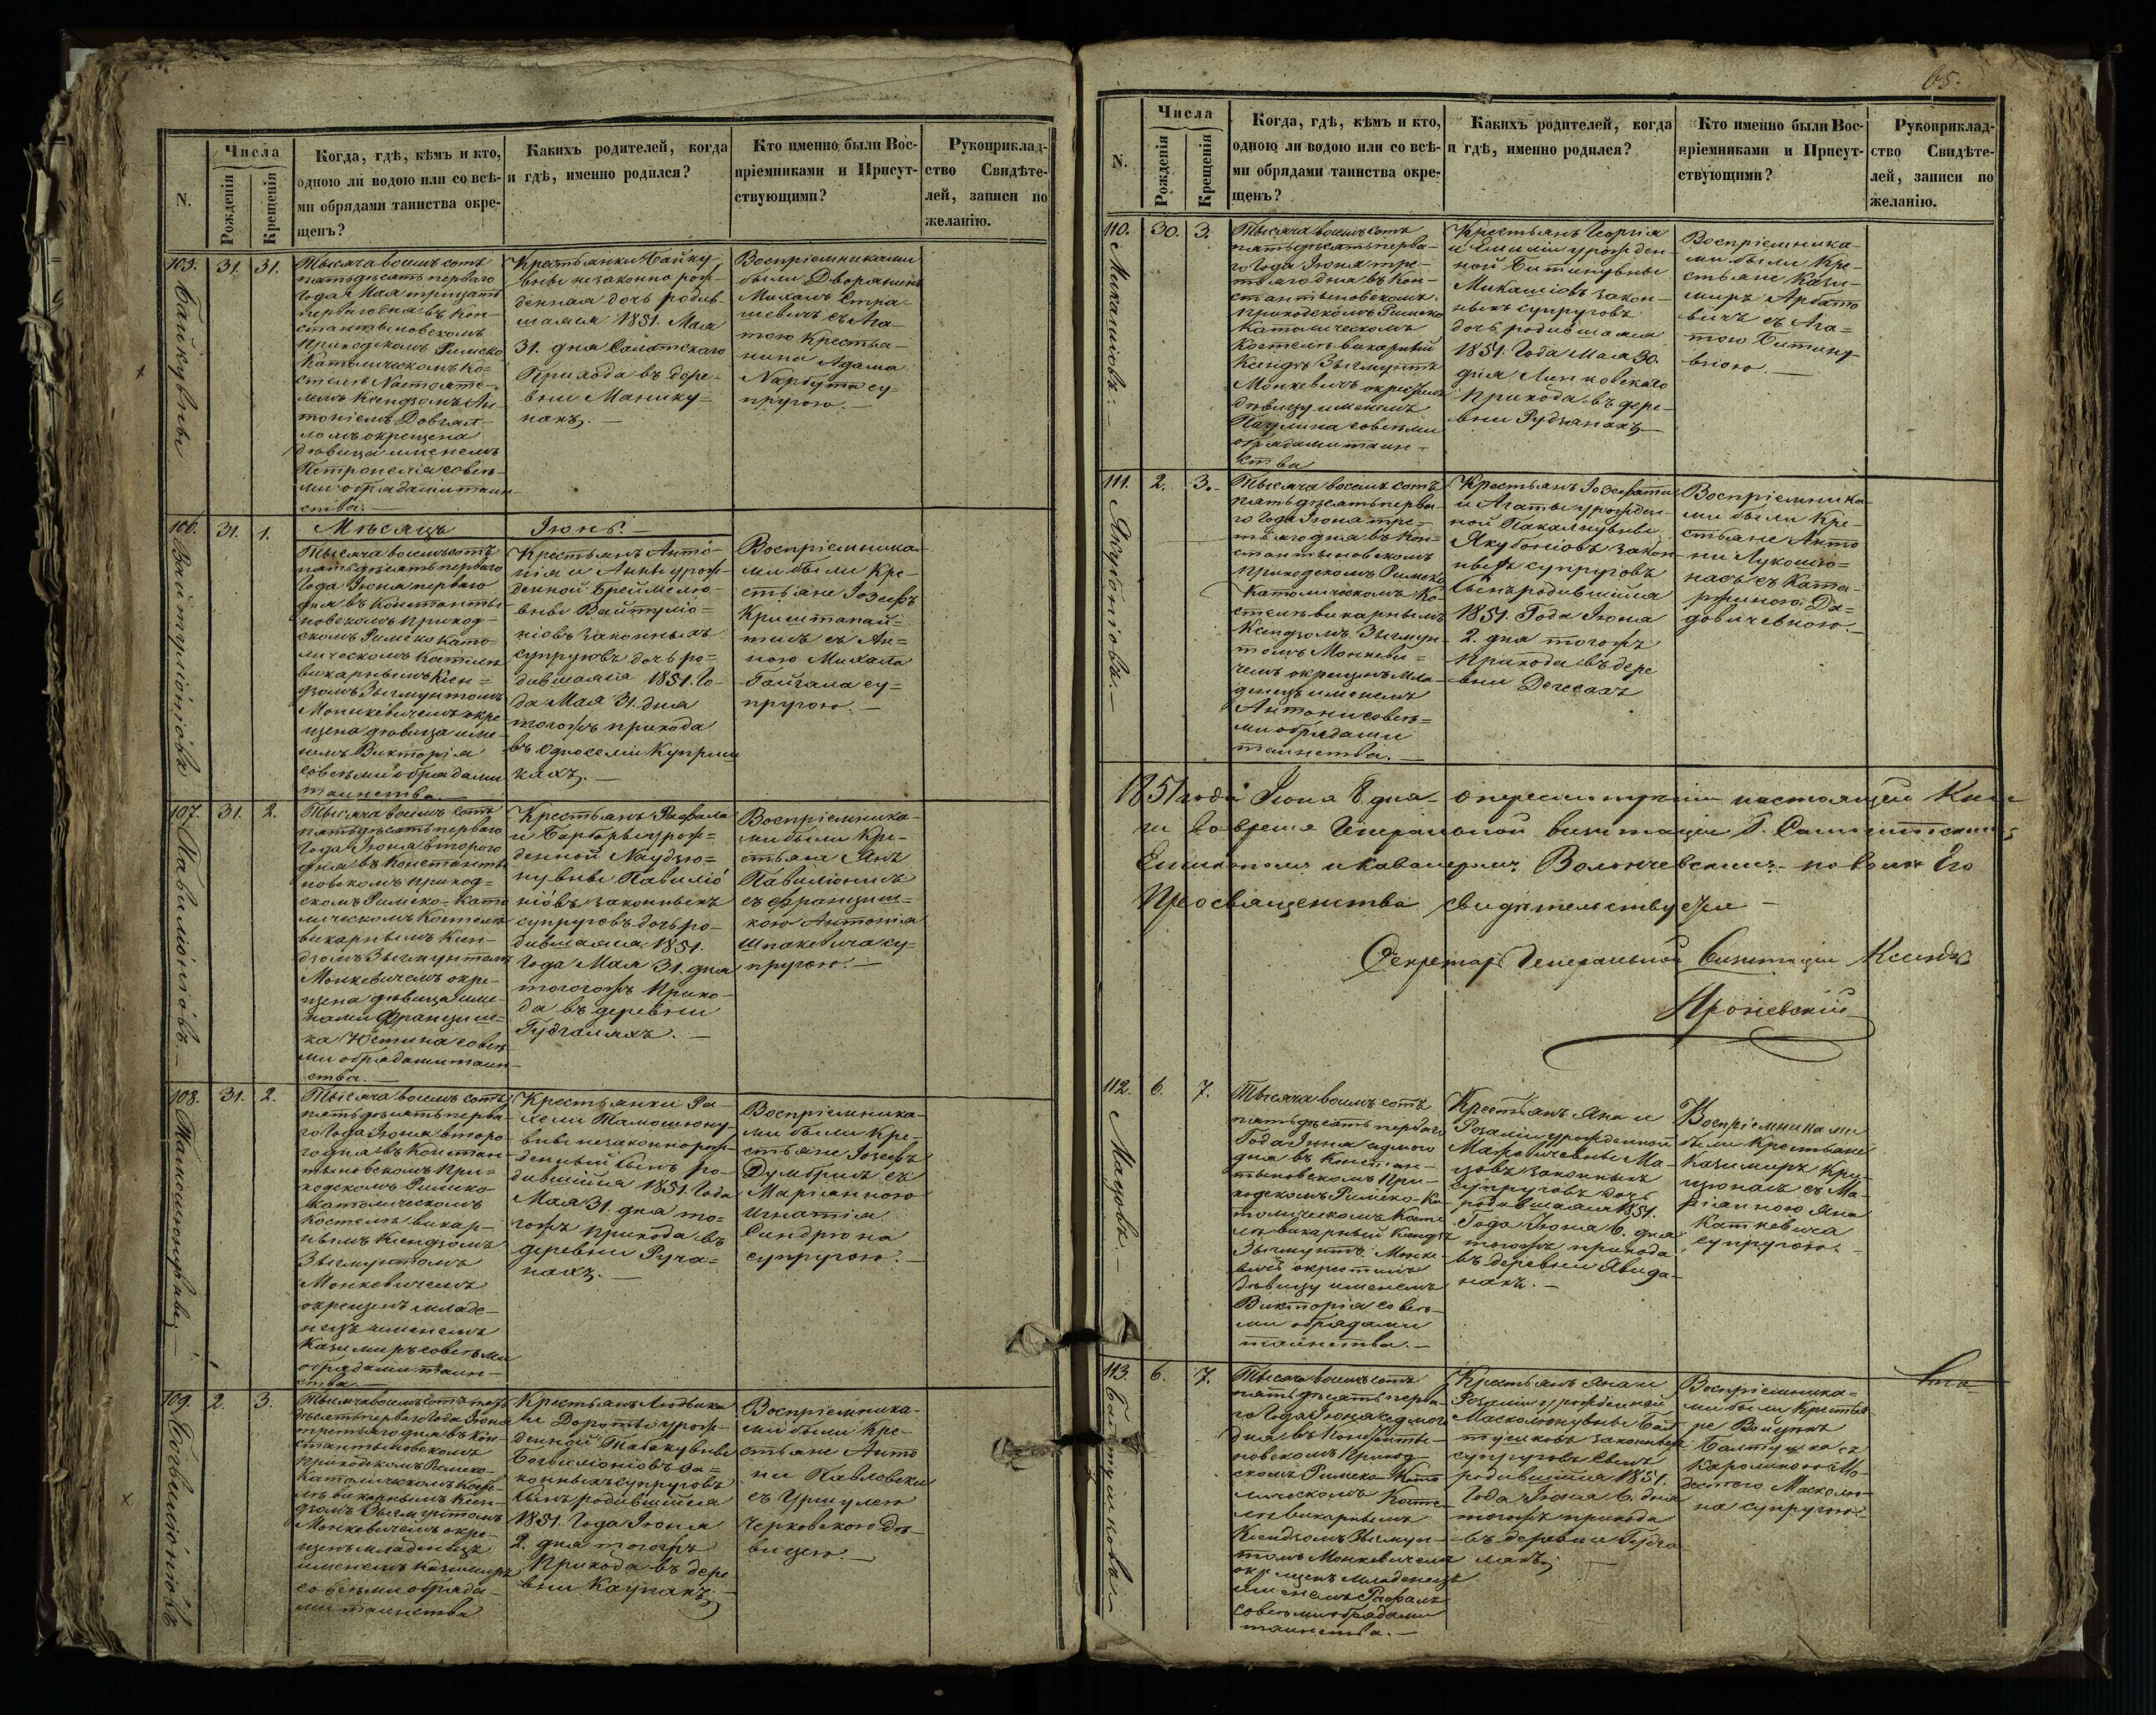 Числа
Когда, гдѣ, кѣмъ и кто,
одною ли водою или со всѣ-
ми обрядами таинства окре-
щенъ?
Какихъ родителей, когда
и гдѣ, именно родился?
Кто именно были Вос-
пріемниками и Присут-
ствующими?
Рукоприклад-
ство Свидѣте-
лей, записи по
желанію.
N.
Рожденія
Крещенія
105.
31.
31.
Тысяча восемъ сотъ
пятьдесятъ перваго
Года Мая тридцать
перваго дня въ Кон-
стантыновскомъ
приходскомъ Римско
Католическомъ Ко-
стелѣ Настояте-
лемъ Ксендзомъ Ан-
тоніемъ Довгял-
ломъ окрещена
дѣвица именемъ
Петронелія совсѣ-
ми обрядами таин-
ства.
Крестьянки Байку
вны незаконно рож-
денная дочь родив-
шаяся 1851. Мая
31. дня Салатскаго
Прихода въ дере-
вни Манику-
нахъ.
Воспріемниками
были Дворянинъ
съ Ага-
тою Крестья-
нина Адама
Нарбута су-
пругою.
106.
31.
1.
Мѣсяцъ Іюнь.
Тысяча восемъ сотъ
пятьдесятъ перваго
Года Іюня перваго
дня въ Константы-
новскомъ приход-
скомъ Римско Като-
лическомъ Костелѣ
викарнымъ Ксен-
дзомъ Зыгмунтомъ
Монкевичемъ окре-
щена дѣвица име-
немъ Викторія
совсѣми обрядами
таинства.
Крестьянъ Анто-
нія и Анны урож-
денной
вны Вайтуліо-
ніовъ законныхъ
супруговъ дочь ро-
дившаяся 1851. Го-
да Мая 31. дня
тогожъ прихода
въ Односеліи
кахъ.
Воспріемника-
ми были Кре-
стьяне Іозефъ
съ Ан-
ною Михала
су-
пругою.
107.
31.
2.
Павиліоніовъ.
Тысяча восемъ сотъ
пятьдесятъ перваго
Года Іюня втораго
дня въ Константы-
новскомъ приход-
скомъ Римско-Като
лическомъ Костелѣ
викарнымъ Ксен-
дзомъ Зыгмунтомъ
Монкевичемъ окре-
щена дѣвица име-
нами Франциш-
ка Юстина совсѣ
ми обрядами таин-
ства.
Крестьянъ Рафала
и Барбары урож-
денной Наудзю-
нувны Павиліо
ніовъ законныхъ
супруговъ дочь ро-
дившаяся 1851.
Года Мая 31. дня
тогожъ Прихо-
да въ деревни
Гудгаляхъ.
Воспріемника-
ми были Кре-
стьяне Янъ
Павиліонисъ
съ Францишк-
кою Антонія
Шпакевича су-
пругою.
108.
31.
2.
Тысяча восемъ сотъ
пятьдесятъ перва
го Года Іюня второ-
го дня въ Констан-
тыновскомъ При-
ходскомъ Римско
католическомъ
Костелѣ викар-
нымъ Ксендзомъ
Зыгмунтомъ
Монкевичемъ
окрещенъ младе-
нецъ именемъ
Казимиръ совсѣми
обрядами таин-
ства.
Крестьянки Ра-
хели Тамошюну-
вны незаконнорож-
денный сынъ ро-
дившійся 1851. Года
Мая 31. дня то-
гожъ прихода въ
деревни Руча-
нахъ.
Воспріемника-
ми были Кре-
стьяне Іозефъ
Думбрисъ съ
Маріанною
Игнатія
Синдрюна
супругою.
109.
2.
3.
Тысяча восемъ сотъ пять
десятъ перваго Года Іюня
третьяго дня въ Кон-
стантыновскомъ
Приходскомъ Римско-
Католическомъ Косте-
лѣ викарнымъ Ксен-
дзомъ Зыгмунтомъ
Монкевичемъ окре-
щенъ младенецъ
именемъ Казимиръ
со всѣми обряда-
ми таинства
Крестьянъ Людвика
и Дороты урож-
денной Табакувны
за-
конныхъ супруговъ
Сынъ родившійся
1851. Года Іюня
2. дня тогожъ
Прихода въ дере
вни Каупахъ.
Воспріемника-
ми были Кре-
стьяне Анто
ни Павловски
съ Уршулею
Черковскою дѣ-
вицею.
65.
Числа
Когда, гдѣ, кѣмъ и кто,
одною ли водою или со всѣ-
ми обрядами таинства окре-
щенъ?
Какихъ родителей, когда
и гдѣ, именно родился?
Кто именно были Вос-
пріемниками и Присут-
ствующими?
Рукоприклад-
ство Свидѣте-
лей, записи по
желанію.
N.
Рожденія
Крещенія
110.
30.
3.
Микашіовъ.
Тысяча восемъ сотъ
пятьдесятъ перва-
го Года Іюня тре-
тьяго дня въ Кон-
стантыновскомъ
приходскомъ Римско
Католическомъ
Костелѣ викарный
Ксендзъ Зыгмунтъ
Монкевичъ окрестилъ
дѣвицу именемъ
Паулина совсѣми
обрядами таин-
ства
Крестьянъ Георгія
и Емиліи урожден-
ной
Микашіовъ закон-
ныхъ супруговъ
дочь родившаяся
1851. Года Мая 30.
дня Линковскаго
прихода въ дере-
вни Рудзянахъ
Воспріемника-
ми были Кре-
стьяне Кази-
миръ Арбато
вичъ съ Ага-
тою
вною.
111.
2.
3.
Якубоніовъ.
Тысяча восемъ сотъ
пятьдесятъ перва-
го Года Іюня тре-
тьяго дня въ Кон-
стантыновскомъ
приходскомъ Римско
Католическомъ Ко-
стелѣ викарнымъ
Ксендзомъ Зыгмун-
томъ Монкеви-
чемъ окрещенъ мла-
денецъ именемъ
Антони совсѣ-
ми обрядами
таинства.
Крестьянъ Іозефата
и Агаты урожден-
ной Пакальнувны
Якубоніовъ закон-
ныхъ супруговъ
Сынъ родившійся
1851. Года Іюня
2. дня тогожъ
прихода въ дере
вни
Воспріемника-
ми были Кре-
стьяне Анто
ни Лукошю-
насъ съ Ката-
ржиною Да-
довичевною.
1851 года Іюня 8 дня о пересмотрѣніи настоящей Кни
ги во время Генеральной визитаціи
Епископомъ и Кавалеромъ Волончевскимъ по волѣ Его
Преосвященства свидѣтельствуетъ
Секретарь Генеральной Визитаціи Ксендзъ
112.
6.
7.
Мацовъ.
Тысяча восемъ сотъ
пятьдесятъ перваго
Года Іюня седмого
дня въ Констан-
тыновскомъ При-
ходскомъ Римско-Ка-
толическомъ Косте
лѣ викарный Ксендзъ
Зыгмунтъ Монке-
вичъ окрестилъ
дѣвицу именемъ
Викторія со всѣ-
ми обрядами
таинства.
Крестьянъ Яна и
Розаліи урожденной
Ма-
цовъ законныхъ
супруговъ дочь
родившаяся 1851.
Года Іюня 6. дня
тогожъ прихода
въ деревни Явида-
нахъ.
Воспріемниками
были Крестьяне
Казимиръ Кру-
цюнасъ съ Ма-
ріанною Яна
Каткевича
супругою.
113.
6.
7.
Тысяча восемъ сотъ
пятьдесятъ перва-
го Года Іюня седмого
дня въ Константы-
новскомъ Приход-
скомъ Римско-Като
лическомъ Косте-
лѣ викарнымъ
Ксендзомъ Зыгмун-
томъ Монкевичемъ
окрещенъ младенецъ
именемъ Рафалъ
совсѣми обрядами
таинства.
Крестьянъ Яна и
Розаліи урожденной
Масколюнувны Бал
тушковъ законныхъ
супруговъ Сынъ
родившійся 1851.
Года Іюня 6. дня
тогожъ прихода
въ деревни Гудга
ляхъ
Воспріемника-
ми были Крестья
Балтушка съ
Каролиною Мо-
дестого Масколю-
на супругою.